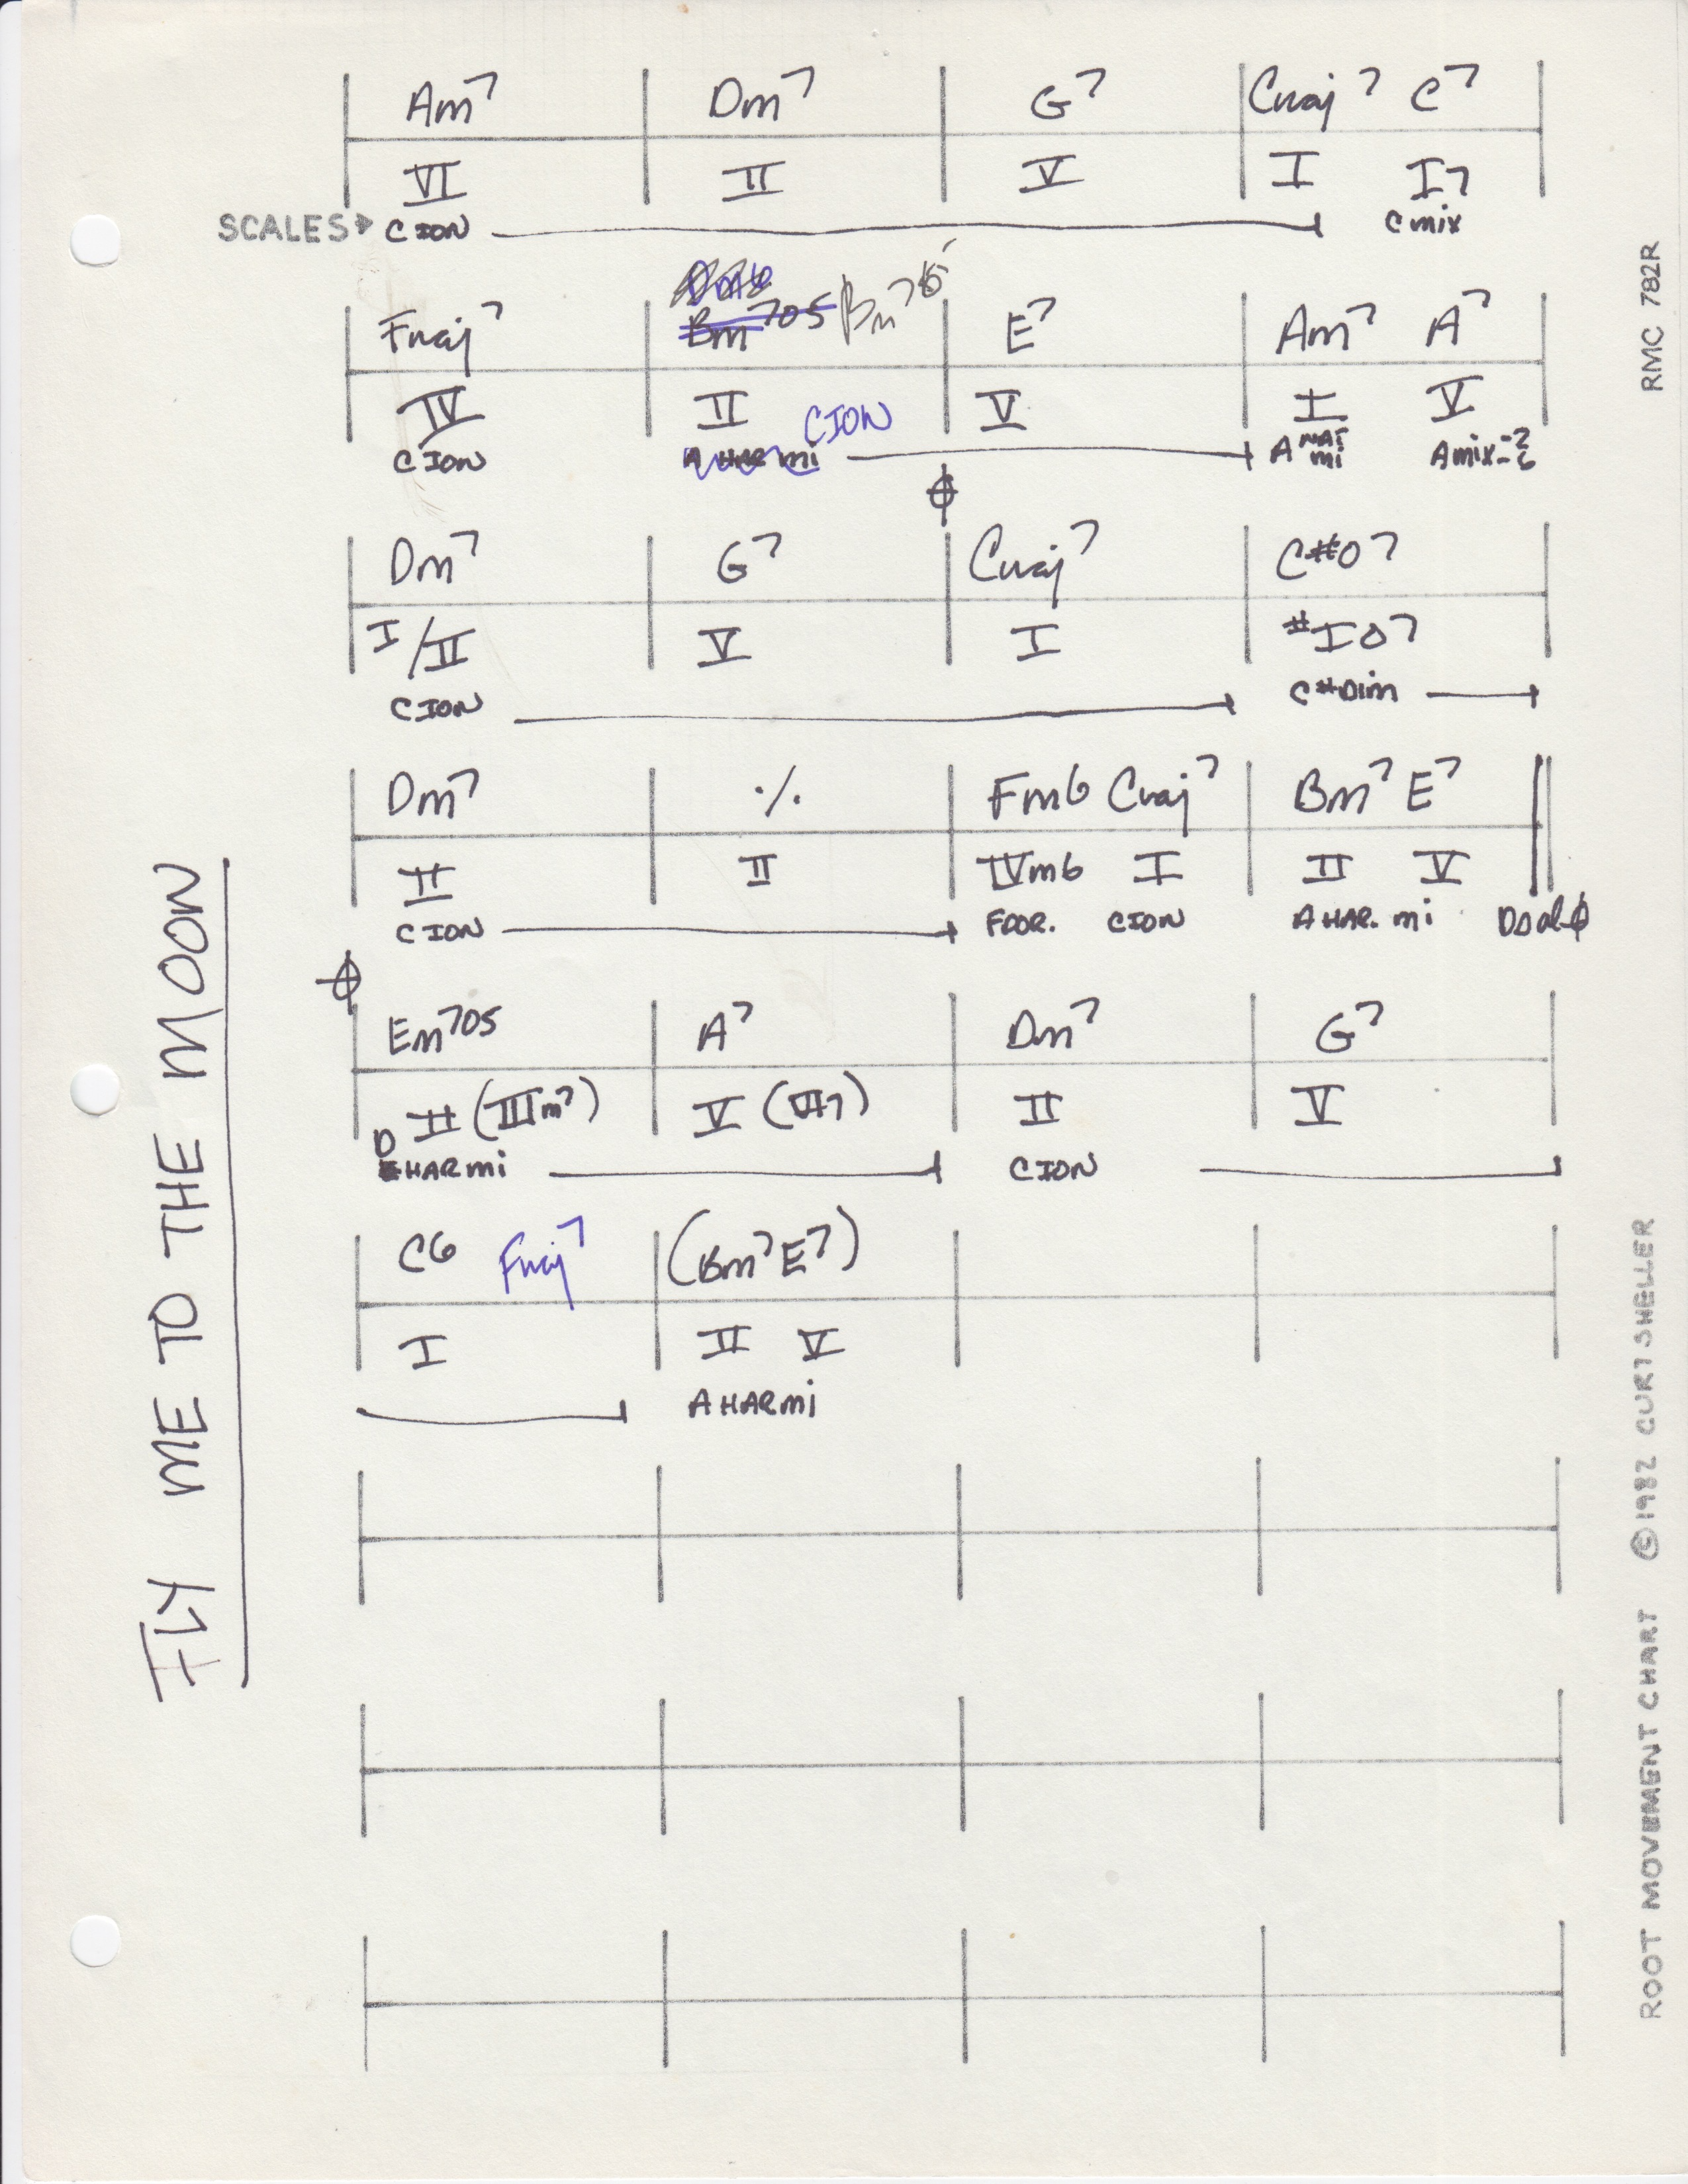 Am7 Dm7 G7 Cmaj7 C7
VI II V I I7
SCALES C ION C mix
Bm7b5
Fmaj7 Bm7o5 E7 Am7 A7
IV II V I V
C ION
C ION A HAR mi A NAT mi A mix-2-6
Dm7 G7 Cmaj7 C#o7
I/II V I #Io7
C ION C# Dim
Dm7 ٪ Fm6 Cmaj7 Bm7 E7
II II IVm6 I II V
C ION F DOR. C ION A HAR. mi DS al
Em7o5 A7 Dm7 G7
II (IIIm7) V (VI7) II V
D HAR mi C ION
C6 Fmaj7 (Bm7 E7)
I II V
A HAR mi
FLY ME TO THE MOON
ROOT MOVEMENT CHART ©1982 CURT SHELLER RMC 782R